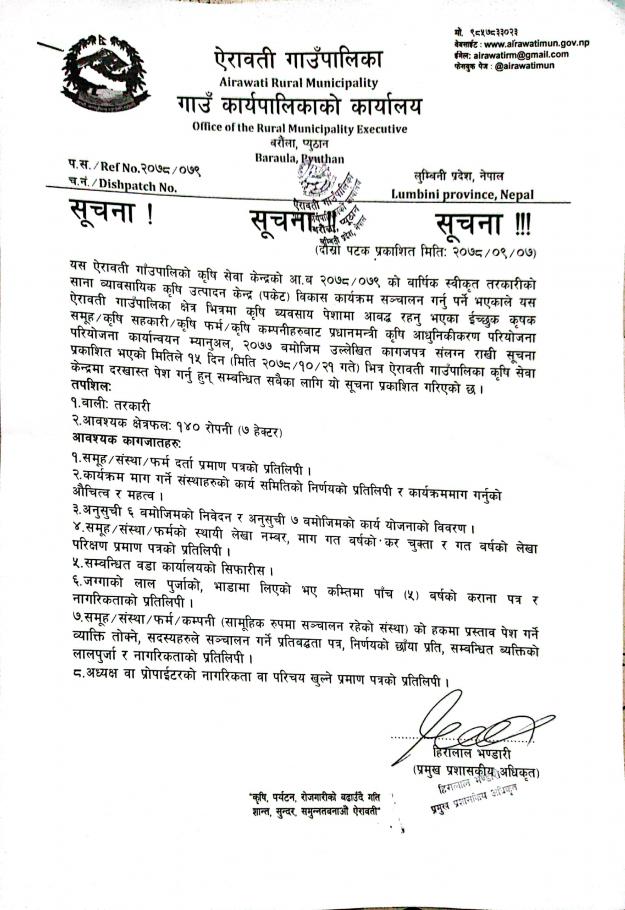 मो. ९८५७८३३०२३
वेबसाईट : www.airawatimun.gov.np
ईमेल: airawatirm@gmail.com
फेसबुक पेज : @airawatimun
ऐरावती गाउँपालिका
Airawati Rural Municipality
गाउँ कार्यपालिकाको कार्यालय
Office of the Rural Municipality Executive
बरौला, प्युठान
Baraula, Pyuthan
प.स./Ref No.२०७८/०७९
च.नं./Dishpatch No.
लुम्बिनी प्रदेश, नेपाल
Lumbini province, Nepal
ऐरावती गाउँपालिका
बरौला, प्युठान
लुम्बिनी प्रदेश, नेपाल
सूचना ! सूचना !! सूचना !!!
(दोस्रो पटक प्रकाशित मिति: २०७८/०९/०७)
यस ऐरावती गाँउपालिको कृषि सेवा केन्द्रको आ.ब २०७८/०७९ को वार्षिक स्वीकृत तरकारीको
साना व्यावसायिक कृषि उत्पादन केन्द्र (पकेट) विकास कार्यक्रम सञ्चालन गर्नु पर्ने भएकाले यस
ऐरावती गाउँपालिका क्षेत्र भित्रमा कृषि ब्यवसाय पेशामा आवद्ध रहनु भएका ईच्छुक कृषक
समूह/कृषि सहकारी/कृषि फर्म/कृषि कम्पनीहरुबाट प्रधानमन्त्री कृषि आधुनिकीकरण परियोजना
परियोजना कार्यान्वयन म्यानुअल, २०७७ बमोजिम उल्लेखित कागजपत्र संलग्न राखी सूचना
प्रकाशित भएको मितिले १५ दिन (मिति २०७८/१०/२१ गते) भित्र ऐरावती गाउँपालिका कृषि सेवा
केन्द्रमा दरखास्त पेश गर्नु हुन् सम्बन्धित सबैका लागि यो सूचना प्रकाशित गरिएको छ ।
तपशिल:
१.वाली: तरकारी
२.आवश्यक क्षेत्रफल: १४० रोपनी (७ हेक्टर)
आवश्यक कागजातहरु:
१.समूह/संस्था/फर्म दर्ता प्रमाण पत्रको प्रतिलिपी ।
२.कार्यक्रम माग गर्ने संस्थाहरुको कार्य समितिको निर्णयको प्रतिलिपी र कार्यक्रममाग गर्नुको
औचित्व र महत्व ।
३.अनुसुची ६ बमोजिमको निवेदन र अनुसुची ७ बमोजिमको कार्य योजनाको विवरण ।
४.समूह/संस्था/फर्मको स्थायी लेखा नम्बर, माग गत वर्षको कर चुक्ता र गत वर्षको लेखा
परिक्षण प्रमाण पत्रको प्रतिलिपी ।
५.सम्बन्धित वडा कार्यालयको सिफारीस ।
६.जग्गाको लाल पुर्जाको, भाडामा लिएको भए कम्तिमा पाँच (५) बर्षको कराना पत्र र
नागरिकताको प्रतिलिपी ।
७.समूह/संस्था/फर्म/कम्पनी (सामूहिक रुपमा सञ्चालन रहेको संस्था) को हकमा प्रस्ताव पेश गर्ने
व्याक्ति तोक्ने, सदस्यहरुले सञ्चालन गर्ने प्रतिबद्धता पत्र, निर्णयको छाँया प्रति, सम्बन्धित ब्यक्तिको
लालपुर्जा र नागरिकताको प्रतिलिपी ।
८.अध्यक्ष वा प्रोपाईटरको नागरिकता वा परिचय खुल्ने प्रमाण पत्रको प्रतिलिपी ।
हिरालाल भण्डारी
(प्रमुख प्रशासकीय अधिकृत)
हिरालाल भण्डारी
प्रमुख प्रशासकिय अधिकृत
"कृषि, पर्यटन, रोजगारीको बढाउँदै गति
शान्त, सुन्दर, समुन्नतबनाऔं ऐरावती"